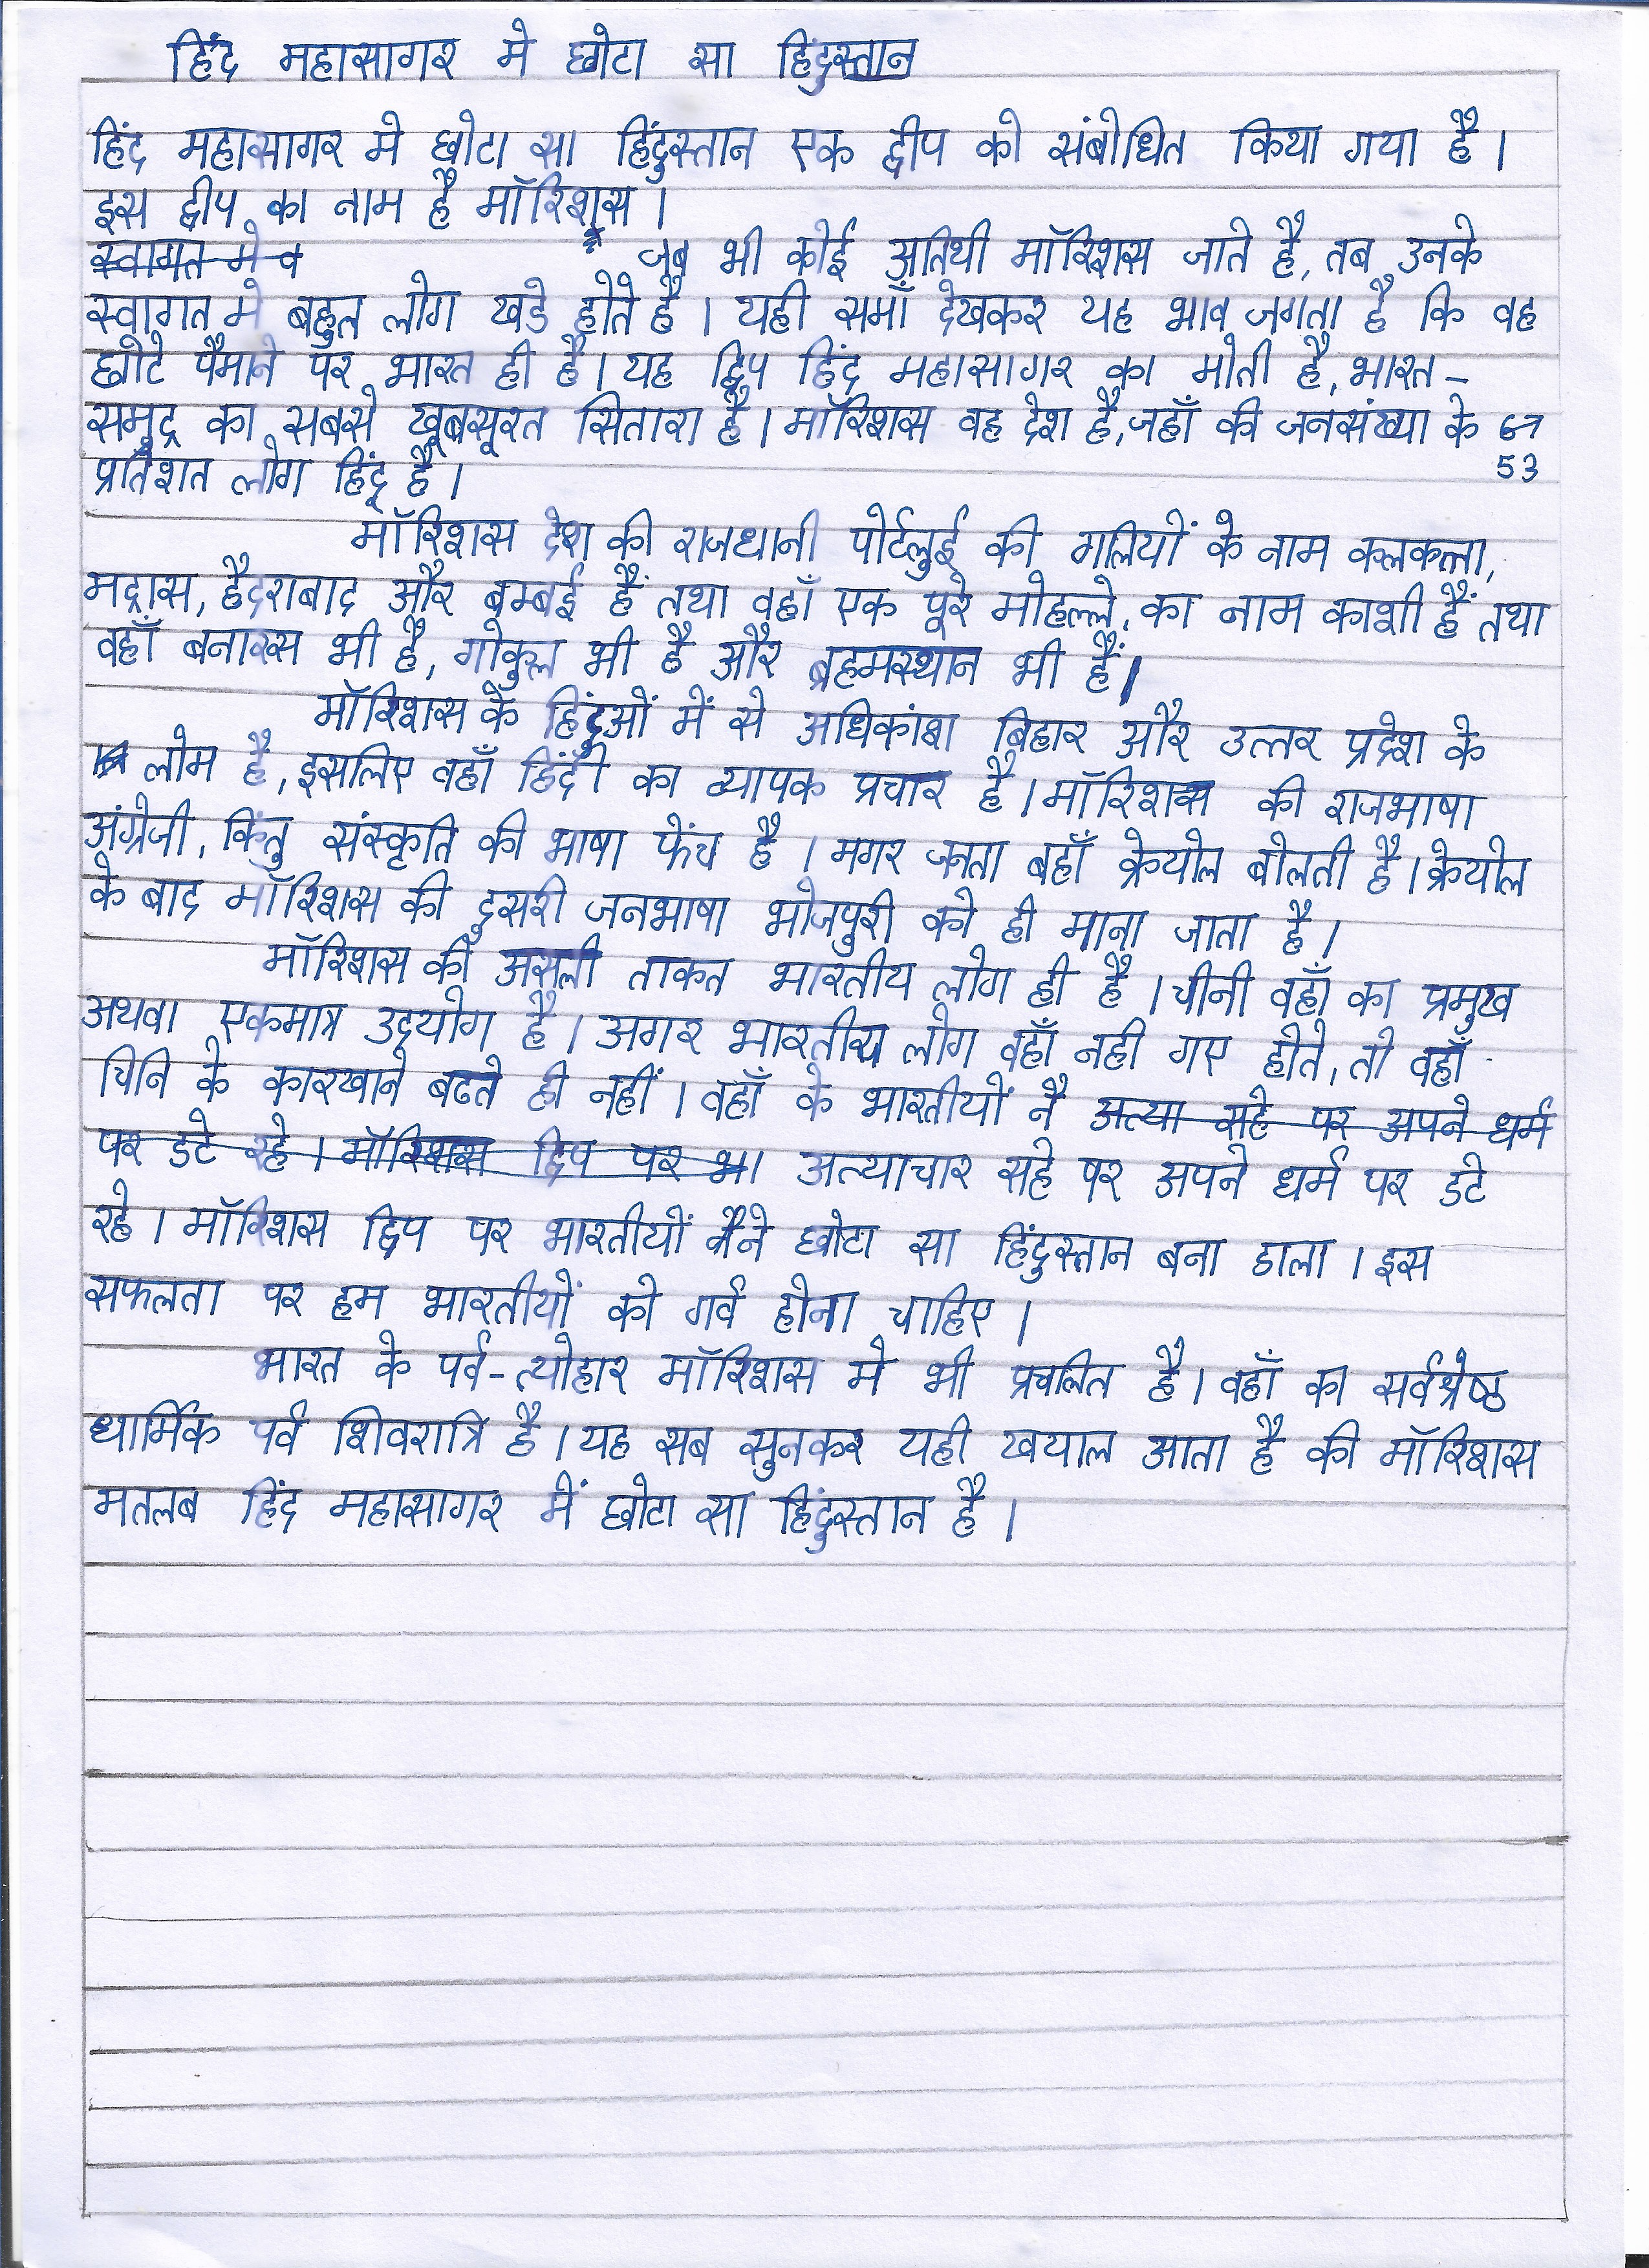 हिंद महासागर मे छोटा सा हिंदुस्तान
हिंद महासागर मे छोटा सा हिंदुस्तान एक द्वीप को संबोधित किया गया है।
इस द्वीप का नाम है मॉरिशस।
स्वागत मे व जब भी कोई अतिथी मॉरिशस जाते है, तब उनके
स्वागत मे बहुत लोग खडे होते है। यही समाँ देखकर यह भाव जगता है कि वह
छोटे पैमाने पर भारत ही है। यह द्विप हिंद महासागर का मोती है, भारत-
समुद्र का सबसे खूबसूरत सितारा है। मॉरिशस वह देश है, जहाँ की जनसंख्या के 67
प्रतिशत लोग हिंदू है। 53
मॉरिशस देश की राजधानी पोर्टलुई की गलियों के नाम कलकत्ता,
मद्रास, हैदराबाद और बम्बई हैं तथा वहाँ एक पूरे मोहल्ले का नाम काशी हैं तथा
वहाँ बनारस भी है, गोकुल भी है और ब्रहमस्थान भी हैं।
मॉरिशस के हिंदूओं में से अधिकांश बिहार और उत्तर प्रदेश के
लोम है, इसलिए वहाँ हिंदी का व्यापक प्रचार है। मॉरिशस की राजभाषा
अंग्रेजी, किंतु संस्कृति की भाषा फेंच है। मगर जनता बहाँ क्रेयोल बोलती है। क्रेयोल
के बाद मॉरिशस की दुसरी जनभाषा भोजपुरी को ही माना जाता है।
मॉरिशस की असली ताकत भारतीय लोग ही है। चीनी वहाँ का प्रमुख
अथवा एकमात्र उद्योग है। अगर भारतीय लोग वहाँ नही गए होते, तो वहाँ
चिनि के कारखाने बढते ही नहीं। वहाँ के भारतीयों नै अत्या सहे पर अपने धर्म
पर डटे रहे। मॉरिशस द्विप पर भा अत्याचार सहे पर अपने धर्म पर डटे
रहे। मॉरिशस द्विप पर भारतीयों नैने छोटा सा हिंदुस्तान बना डाला। इस
सफलता पर हम भारतीयों को गर्व होना चाहिए।
भारत के पर्व-त्योहार मॉरिशस मे भी प्रचलित है। वहाँ का सर्वश्रेष्ठ
धार्मिक पर्व शिवरात्रि है। यह सब सुनकर यही खयाल आता है की मॉरिशस
मतलब हिंद महासागर में छोटा सा हिंदुस्तान है।